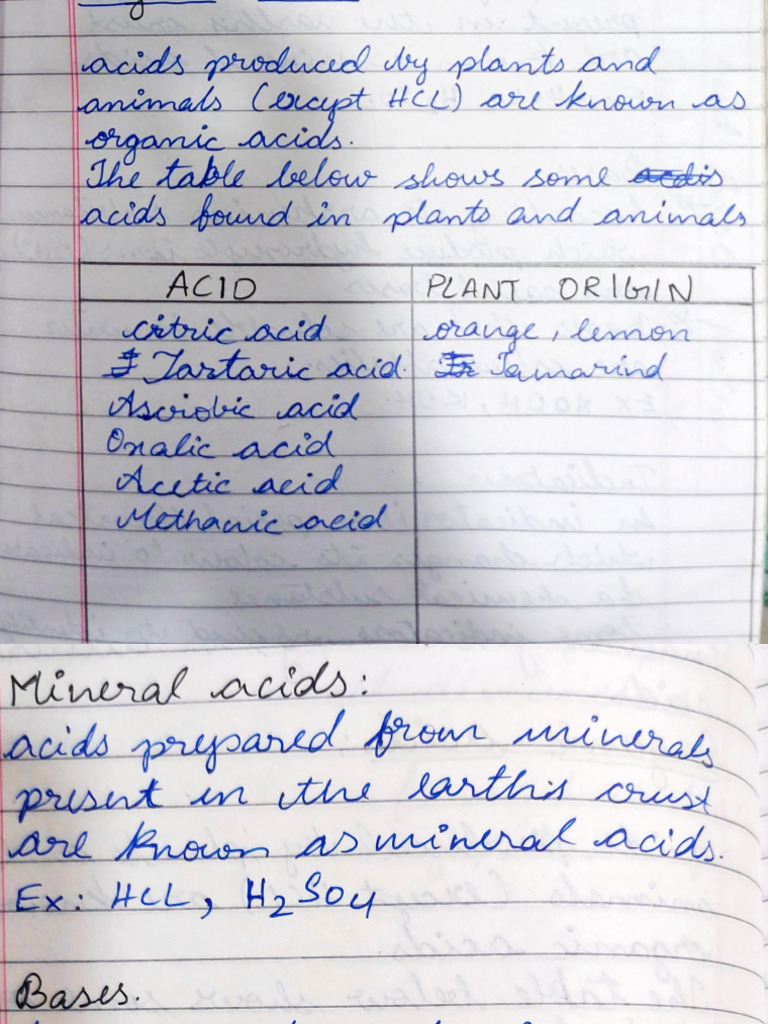 acids produced by plants and
animals (except HCL) are known as
organic acids.
The table below shows some acdis
acids found in plants and animals
ACID PLANT ORIGIN
citric acid orange, lemon
Tartaric acid. Tamarind
Ascriobic acid
Oxalic acid
Acetic acid
Methanic acid
Mineral acids:
acids prepared from minerals
present in the earth's crust
are known as mineral acids.
Ex: HCL, H2SO4
Bases.